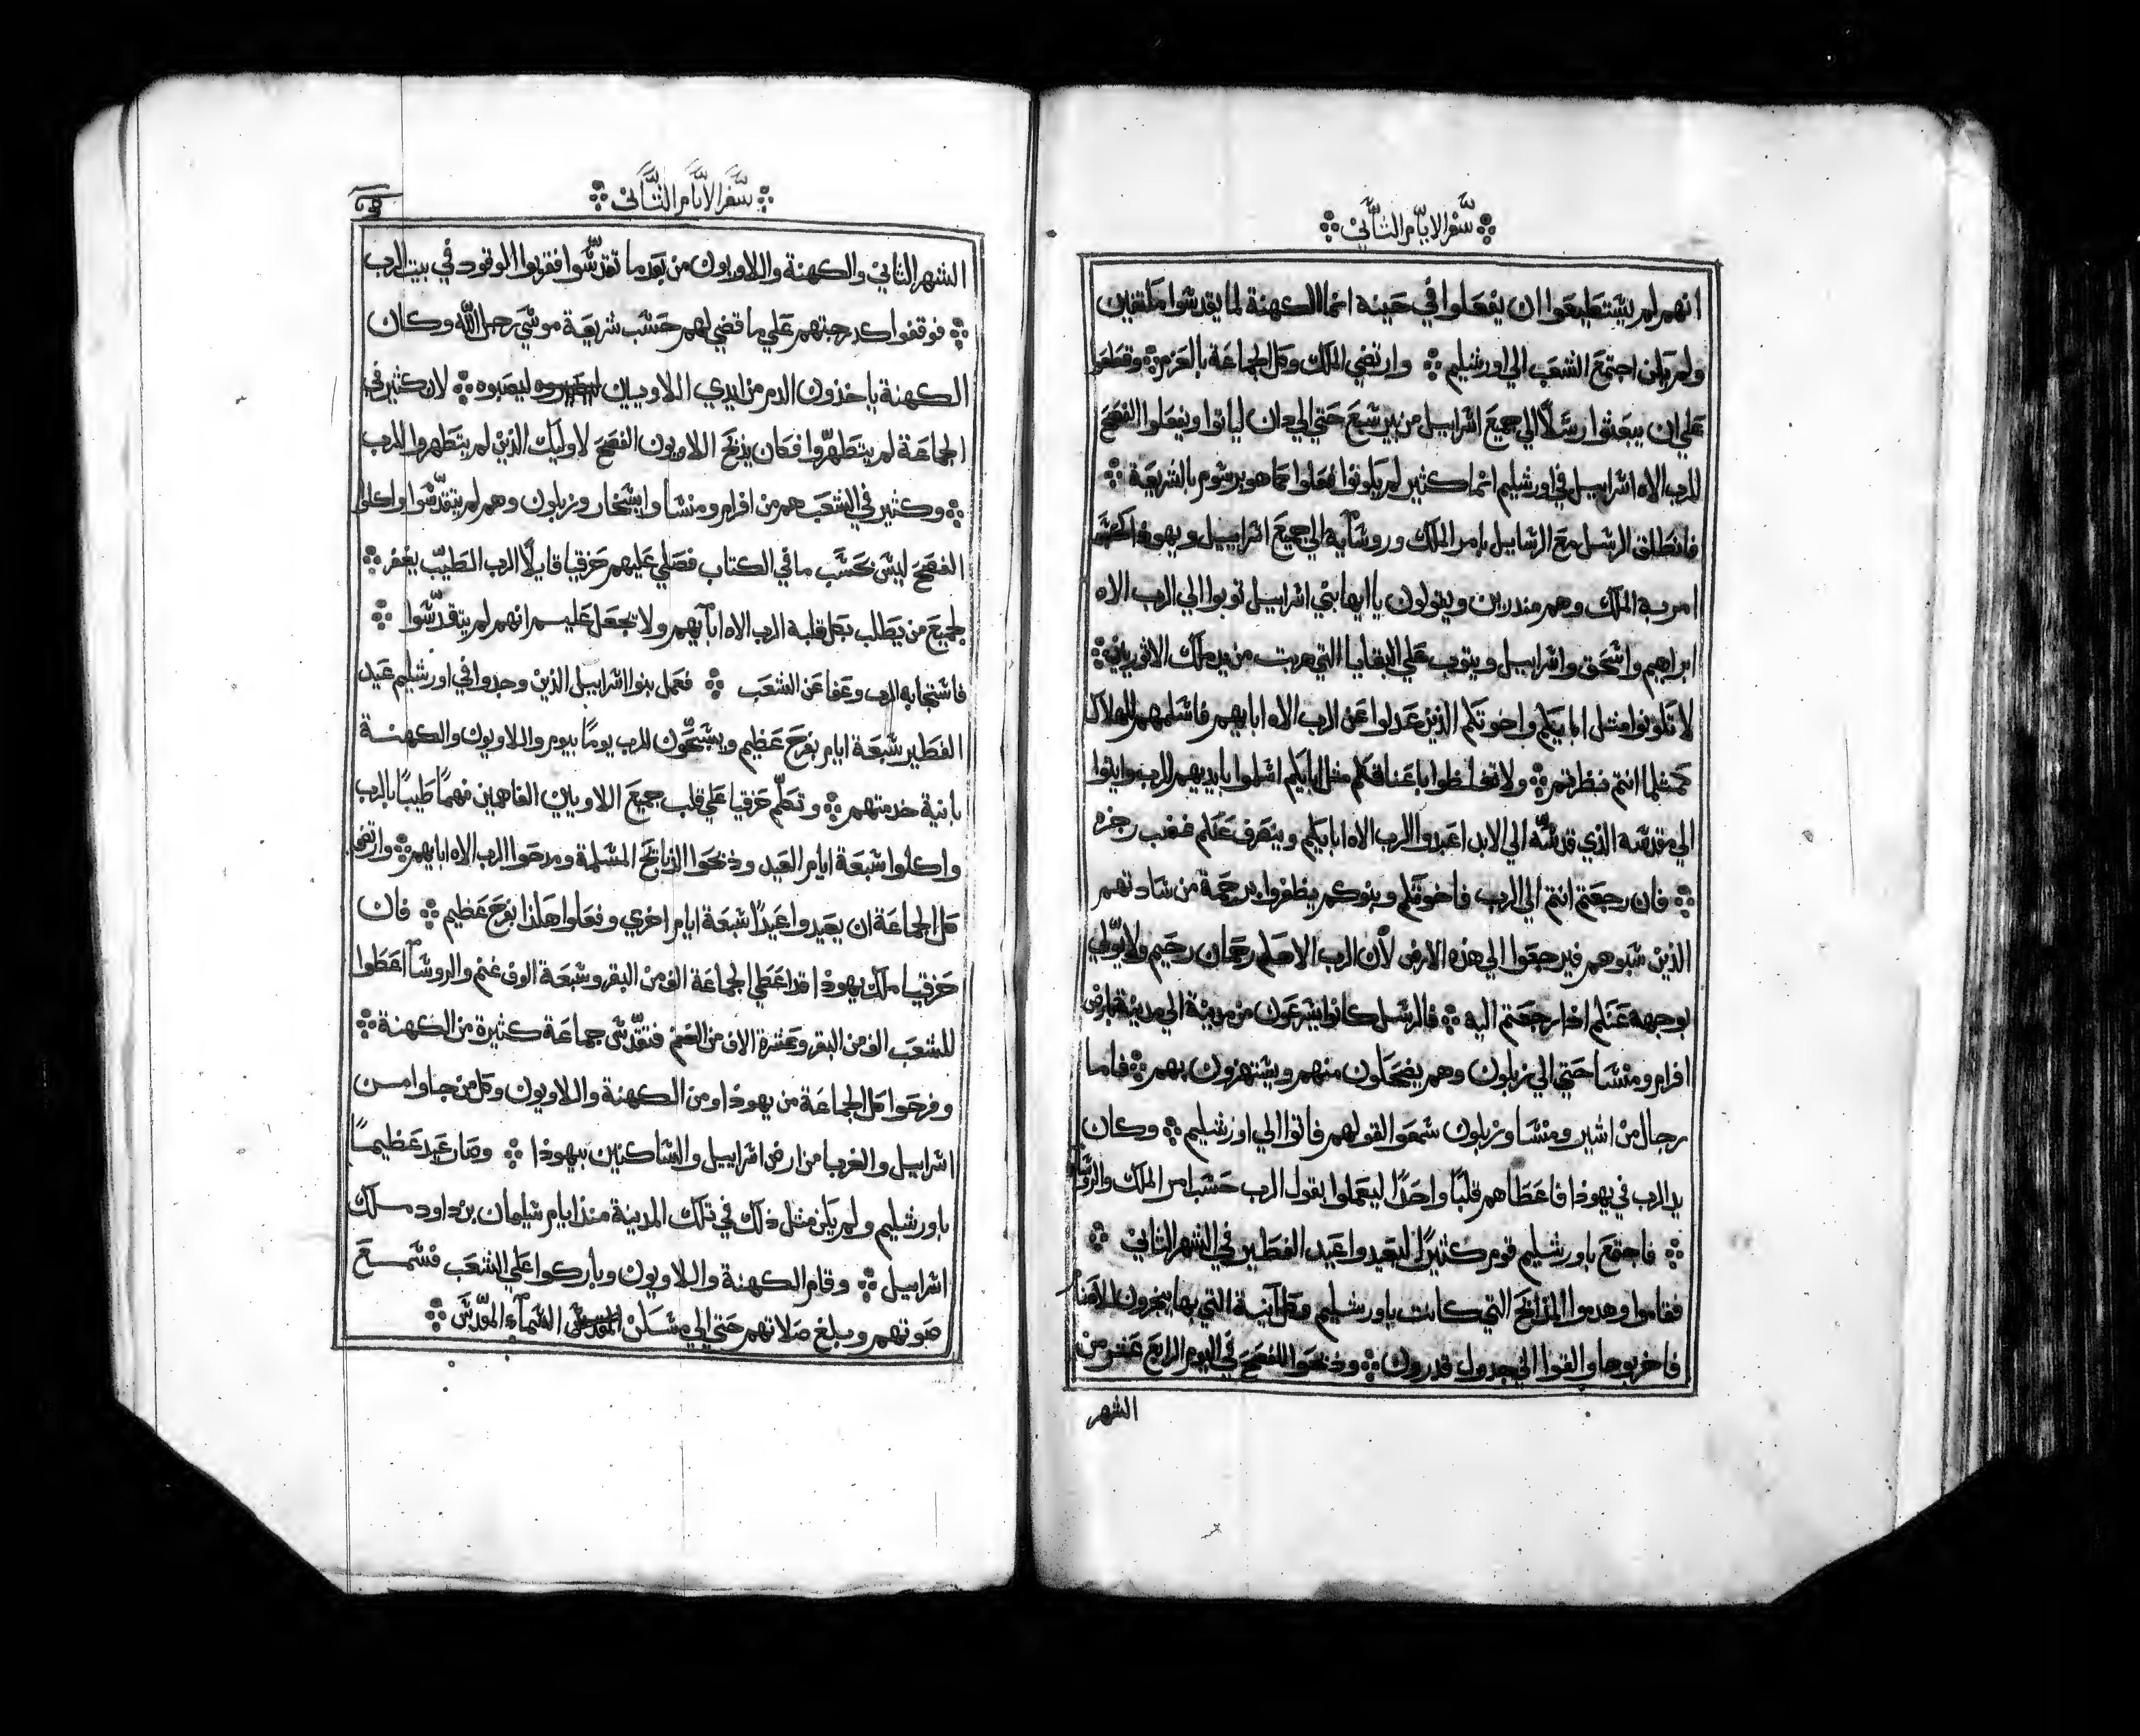 سفر الايام الثاني
انهم لم يستطيعوا ان يفعلوا في حينه انما الكهنة لما يقدسوا ملتقين
ولم يكن اجتمع الشعب الي اورشليم وارتضي الملك وكل الجماعة بالعزم وقطعوا
علي ان يبعثوا رسلًا الي جميع اسراييل من بيرسبع حتي الي دان لياتوا ويفعلوا الفصح
للرب الاه اسراييل في اورشليم انما كثير لم يكونوا فعلوا كما هو مرسوم بالشريعة
فانطلق الرسل مع الرسايل بامر الملك وروسايه الي جميع اسراييل ويهوذا كحسب
امر به الملك وهم منذرين ويقولون يا ايها بني اسراييل توبوا الي الرب الاه
ابراهيم واسحق واسراييل ويتوب علي البقايا التي هربت من يد ملك الاثوريين
لا تكونوا مثل ابايكم واخوتكم الذين عدلوا عن الرب الاه ابايهم فاسلمهم للهلاك
كمثلما انتم نظرتم ولا تغلظوا باعناقكم مثل ابايكم اسلموا بايديهم للرب وايتوا
الي مقدسه الذي قدسّه الي الابد اعبدوا الرب الاه ابايكم وينصرف عنكم غضب رجزه
فان رجعتم انتم الي الرب فاخوتكم وبنوكم يظفروا برحمة من ساداتهم
الذين سبوهم فيرجعوا الي هذه الارض لأن الرب الاهكم رحمان رحيم ولا يولّي
بوجهه عنكم اذا رجعتم اليه فالرسل كانوا يسرعون من مدينة الي مدينة بارض
افرام ومنسا حتي الي زبلون وهم يضحكون منهم ويستهزون بهم فاما
رجال من اشير ومنسا وزبلون سمعوا لقولهم فاتوا الي اورشليم وكان
يد الرب في يهوذا فاعطاهم قلبًا واحدًا ليعملوا بقول الرب حسب امر الملك والروسا
فاجتمع باورشليم قوم كثيرًا ليعيدوا عيد الفطير في الشهر الثاني
فقاموا وهدموا المذابح التي كانت باورشليم وكل آنية التي بها يبخرون للاصنام
فاخربوها والقوا الي جدول قدرون وذبحوا الفصح في اليوم الرابع عشر من
الشهر
سفر الايام الثاني
الشهر الثاني والكهنة واللاويون من بعد ما تقدّسوا فقربوا الوقود في بيت الرب
فوقفوا كدرجتهم علي ما قضي لهم حسب شريعة موسي رجل الله وكان
الكهنة ياخذون الدم من ايدي اللاويين ليصبوه لان كثير في
الجماعة لم يتطهّروا فكان يذبح اللاويون الفصح لاوليك الذين لم يتطهروا للرب
وكثير في الشعب هم من افرام ومنسا وايسخار وزبلون وهم لم يتقدّسوا واكلوا
الفصح ليس بحسب ما في الكتاب فصلي عليهم حزقيا قايلًا الرب الطيّب يغفر
لجميع من يطلب بكل قلبه الرب الاه ابآيهم ولا تجعل عليهم انهم لم يتقدّسوا
فاستجابه الرب وعفا عن الشعب فعمل بنوا اسراييل الذين وجدوا في اورشليم عيد
الفطير سبعة ايام بفرح عظيم ويسبّحون للرب يومًا بيوم واللاويون والكهنة
بانية خدمتهم وتكلّم حزقيا علي قلب جميع اللاويين الفاهمين فهمًا طيبًا بالرب
واكلوا سبعة ايام العيد وذبحوا الذبايح المسلمة ومدحوا الرب الاه ابايهم وارتضي
كل الجماعة ان يعيدوا عيدًا سبعة ايام اخري وفعلوا هكذا بفرح عظيم فان
حزقيا ملك يهوذا قد اعطي الجماعة الف من البقر وسبعة الوف غنم والروسآ اعطوا
للشعب الف من البقر وعشرة الاف من الغنم فتقدّس جماعة كثيرة من الكهنة
وفرحوا كل الجماعة من يهوذا ومن الكهنة واللاويون وكل من جاوا من
اسراييل والغربا من ارض اسراييل والساكنين بيهوذا وصار عيد عظيمًا
باورشليم ولم يكن مثل ذلك في تلك المدينة منذ ايام سليمان بن داود ملك
اسراييل وقام الكهنة واللاويون وباركوا علي الشعب فسمع
صوتهم وبلغ صلاتهم حتي الي مسكن السمآء المقدّس